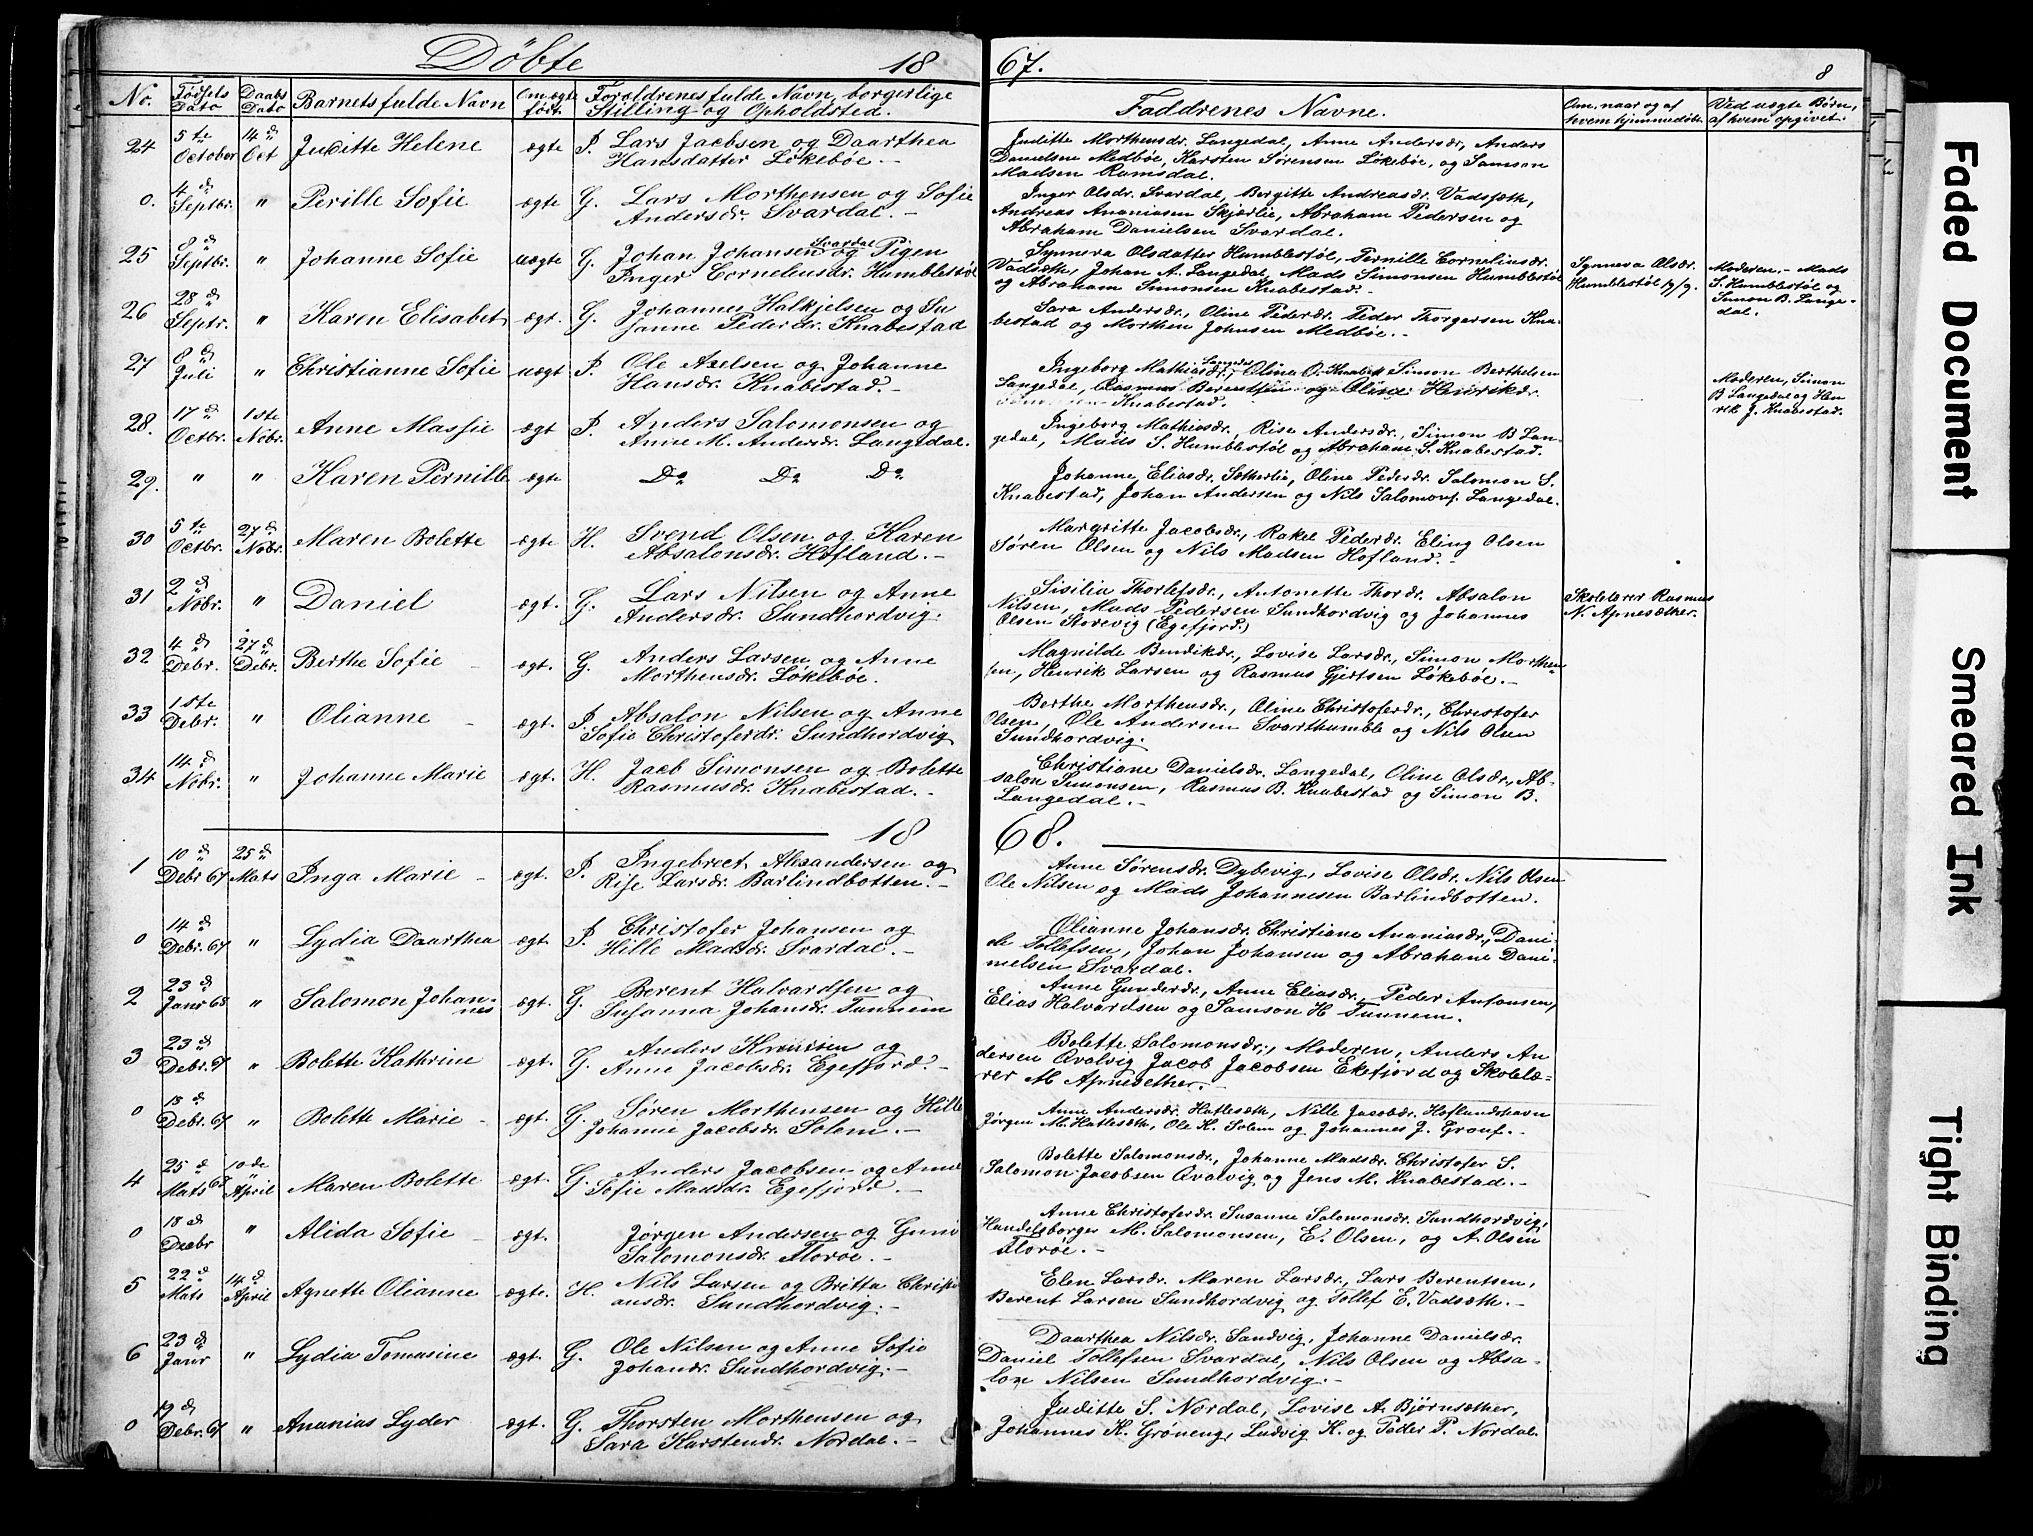 Döbte 18
67.
8
No. Fødsels Dato Daabs Dato Barnets fulde Navn Om ægte født. Forældrenes fulde Navn, borgerlige Stilling og Opholdsted. Faddrenes Navne. Om, naar og af hvem hjemmedøbt. Ved uægte Børn, af hvem opgivet.
24 5te October 14d Oct Juditte Helene ægte P. Lars Jacobsen og Daarthea
Hansdatter Løkebøe. –
Juditte Morthensdr. Langedal, Anne Andersdr, Anders
Danielsen Medbøe, Karsten Sørensen Løkebøe, og Samson
Madsen Ramsdal.
0. 4d Septbr. " Perille Sofie ægte G. Lars Morthensen og Sofie
Andersdr. Svardal. –
Inger Olsdr. Svardal, Bergitte Andreasdr. Vadsæth,
Andreas Ananiasen Skjærlie, Abraham Pedersen og
Abraham Danielsen Svardal.
25 8d Septbr. " Johanne Sofie uægte G. Johan Johansen Svardal og Pigen
Inger Corneliusdr. Humblestøl
Synneva Olsdatter Humblestøl, Pernille Corneliusdr.
Vadsæth, Johan A. Langedal, Mads Simonsen Humblestøl
og Abraham Simonsen Knabestad. –
Synneva Olsdr.
Humblestøl 19/9.
Moderen. – Mads
S. Humblestøl og
Simon B. Lange-
dal.
26 28d Septr. " Karen Elisabet ægt. G. Johannes Halkjelsen og Su
sanne Pedersdr. Knabestad
Sara Andersdr., Oline Pedersdr. Peder Thorgersen Kna-
bestad og Morthen Johnsen Medbøe. –
27 8d Juli " Christianne Sofie uægt P. Ole Axelsen og Johanne
Hansdr. Knabestad. –
Ingeborg Mathiasdr., Langedal Olina O. Knabest Simon Berthelsen
Langedal, Rasmus Berentsen og Oline Henrikdr.
Knabestad.
Moderen, Simon
B Langedal og Hen
rik J. Knabestad.
28. 17d Octbr. 1ste Nobr. Anne Massie ægt P. Anders Salomonsen og
Anne M. Andersdr. Langedal.
Ingeborg Mathiasdr., Rise Andersdr., Simon B Lan-
gedal, Mads S. Humblestøl og Abraham S. Knabestad.
29. " " Karen Pernille ægte Do Do Do
Johanne Eliasdr. Sætherlie, Oline Pedersdr. Salomon S.
Knabestad, Johan Andersen og Nils Salomons. Langedal.
30 5te Octbr. 27d Nobr. Maren Bolette ægte H. Svend Olsen og Karen
Absalonsdr. Hofland. –
Margritte Jacobsdr., Rakel Pedersdr. Eling Olsen
Søren Olsen og Nils Madsen Hofland. –
31 2d Nobr. " Daniel ægt. G. Lars Nilsen og Anne
Andersdr. Sundhordvig.
Sisilia Thorlefsdr., Antonette Thordr. Absalon
Nilsen, Mads Pedersen Sundhordvig og Johannes
Olsen Storevig (Egefjord.)
Skolelærer Rasmus
N. Apnesæther.
32 4d Debr. 27d Debr. Berthe Sofie – ægt. G. Anders Larsen og Anne
Morthensdr. Løkebøe.
Magnilde Bendikdr., Lovise Larsdr., Simon Morthen-
sen, Henrik Larsen og Rasmus Gjertsen Løkebøe. –
33 1ste Debr. " Olianne – ægt. P. Absalon Nilsen og Anne
Sofie Christoferdr. Sundhordvig
Berthe Morthensdr., Oline Christoferdr., Christofer
Olsen, Ole Andersen Svarthumble og Nils Olsen
Sundhordvig.
34 14d Nobr. " Johanne Marie ægt. H. Jacob Simonsen og Bolette
Rasmusdr. Knabestad. –
Christiane Danielsdr. Langedal, Oline Olsdr., Ab-
salon Simonsen, Rasmus B. Knabestad og Simon B.
Langedal. –
18 68.
1 10d Debr 67 25d Mats Inga Marie – ægt. P. Ingebrect Alexandersen og
Rise Larsdr. Barlindbotten. –
Anne Sørensdr. Dybevig, Lovise Olsdr. Nils Olsen
Ole Nilsen og Mads Johannesen Barlindbotten.
0 14d Debr. 67 " Lydia Daarthea ægt. P. Christofer Johansen og
Hille Madsdr. Svardal. –
Olianne Johansdr. Christiane Ananiasdr., Dani-
el Tollefsen, Johan Johansen og Abraham Dani-
nielsen Svardal.
2 23d Janr 68 " Salomon Johan-
nes ægt. G. Berent Halvardsen og
Susanna Johansdr. Tunnem
Anne Gundersdr., Anne Eliasdr., Peder Antonsen,
Elias Halvardsen og Samson H Tunnem.
3 23d Debr. 67 " Bolette Kathrine ægt. G. Anders Hansen og
Anne Jacobsdr. Egefjord. –
Bolette Salomonsdr., Moderen, Anders An
dersen Qvalvig Jacob Jacobsen Ekefjord og Skolelæ-
rer M Apnesether. –
0 13d Debr. 67 " Bolette Marie – ægt. G. Søren Morthensen og Hille
Johanne Jacobsdr. Solem. –
Anne Andersdr. Hatlesæth, Nille Jacobsdr. Hoflandshavn
Jørgen M. Hatlesæth, Ole K. Solem og Johannes J. Grouf. –
4 25d Mats 68 10de April Maren Bolette ægt. G. Anders Jacobsen og Anne
Sofie Madsdr. Egefjord. –
Bolette Salomonsdr., Johanne Madsdr. Christofer S.
Salomon Jacobsen Qvalvig og Jens M. Knabestad. –
0 18d Decbr " Alida Sofie – ægt. Jørgen Andersen og Guni
Salomonsdr. Florøe. –
Anne Christoferdr. Susanne Salomonsdr. Sundhordvig,
Handelsborger M. Salomonsen, E. Olsen, og A. Olsen
Florøe. –
5 22d Mats 14d April Agnette Olianne ægte. H. Nils Larsen og Britta Christi
ansdr. Sundhordvig. –
Elen Larsdr. Maren Larsdr., Lars Berentsen,
Berent Larsen Sundhordvig og Tollef E. Vadsæth. –
6 23d Janr " Lydia Tomasine ægt. G. Ole Nilsen og Anne Sofie
Johandr. Sundhordvig. –
Daarthea Nilsdr. Sandvig, Johanne Danielsdr.
Daniel Tollefsen Svardal, Nils Olsen og Absa-
lon Nilsen Sundhordvig. –
0 19d Debr. 67 " Ananias Lyder ægt. G. Thorsten Morthensen og
Sara Karstendr. Nordal. –
Juditte S. Nordal, Lovise A. Bjørnsæther,
Johannes K. Grøneng, Ludvig K. og Peder P. Nordal.
Faded Document
Smeared Ink
Tight Binding